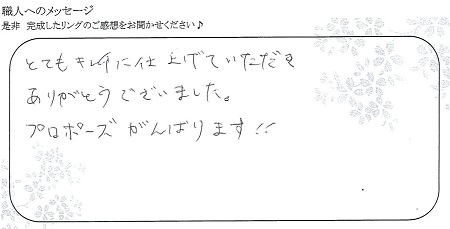 職人へのメッセージ
是非 完成したリングのご感想をお聞かせください♪
とてもキレイに仕上げていただき
ありがとうございました。
プロポーズがんばります!!